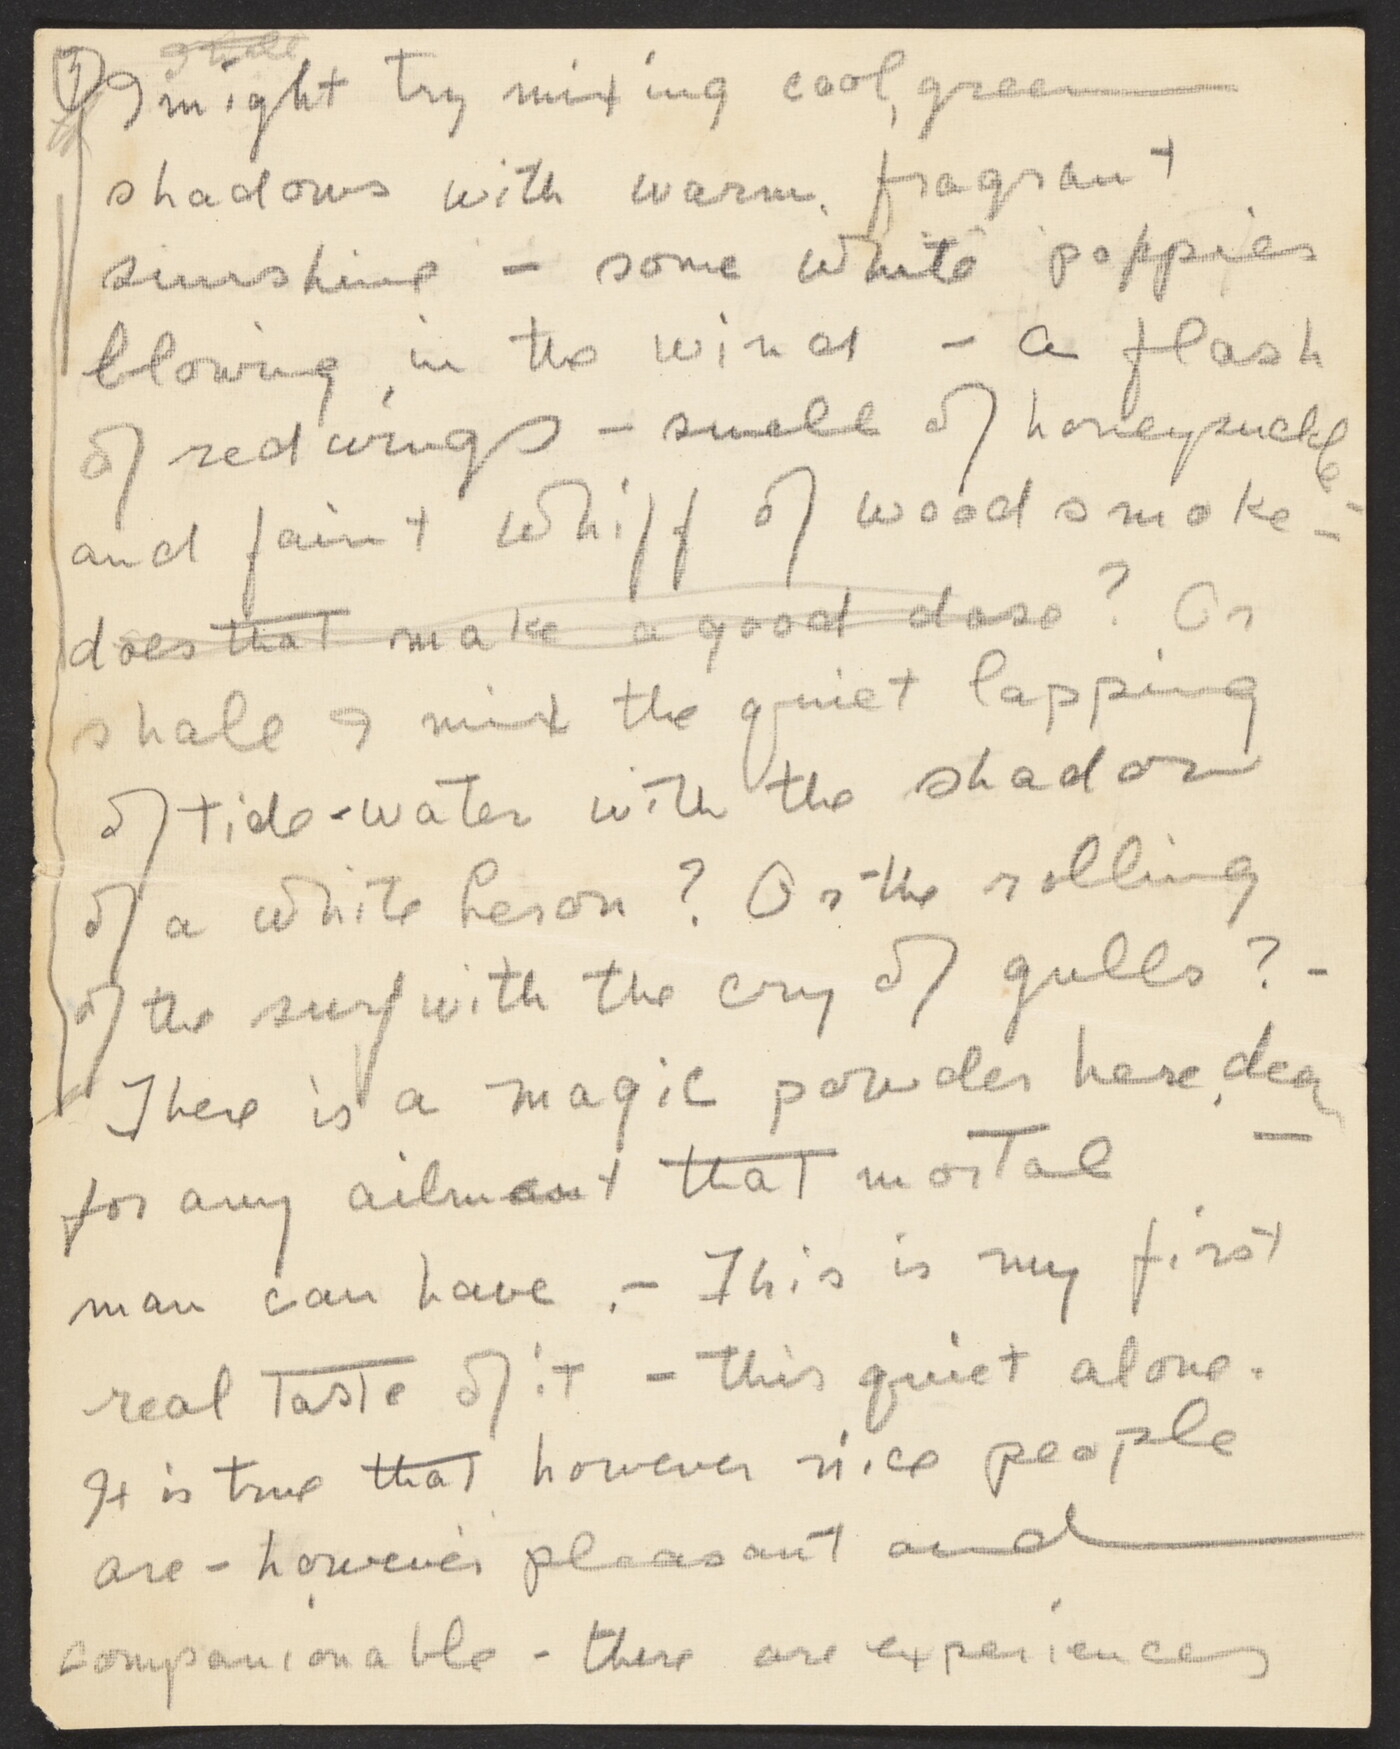 I might try mixing cool, green
shadows with warm, fragrant
sunshine - some white poppies
blowing in the wind - a flash
of red wings - smell of honeysuckle
and faint whiff of wood smoke -
does that make a good dose? Or
shall I mix the quiet lapping
of tide-water with the shadow
of a white heron? Or the rolling
of the surf with the cry of gulls? -
There is a magic powder here, dear,
for any ailment that mortal
man can have. - This is my first
real taste of it - this quiet alone.
It is true that however nice people
are - however pleasant and
companionable - there are experiences